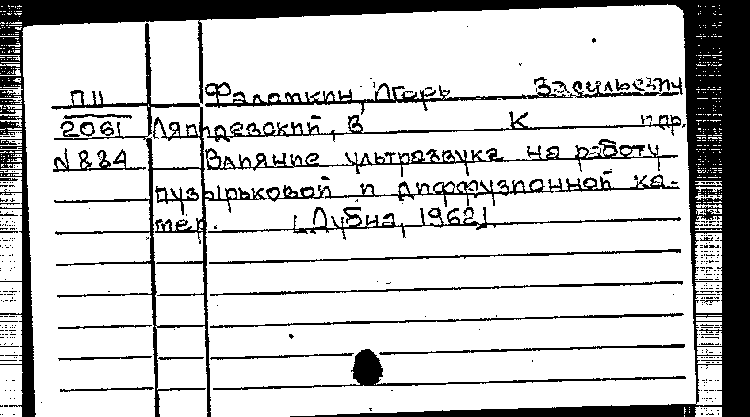 П11 Фаломкин, Игорь Васильевич
2061 Ляпидевский, В К и др.
N 834 Влияние ультразвука на работу
пузырьковой и диффузионной ка-
мер. [Дубна, 1962].